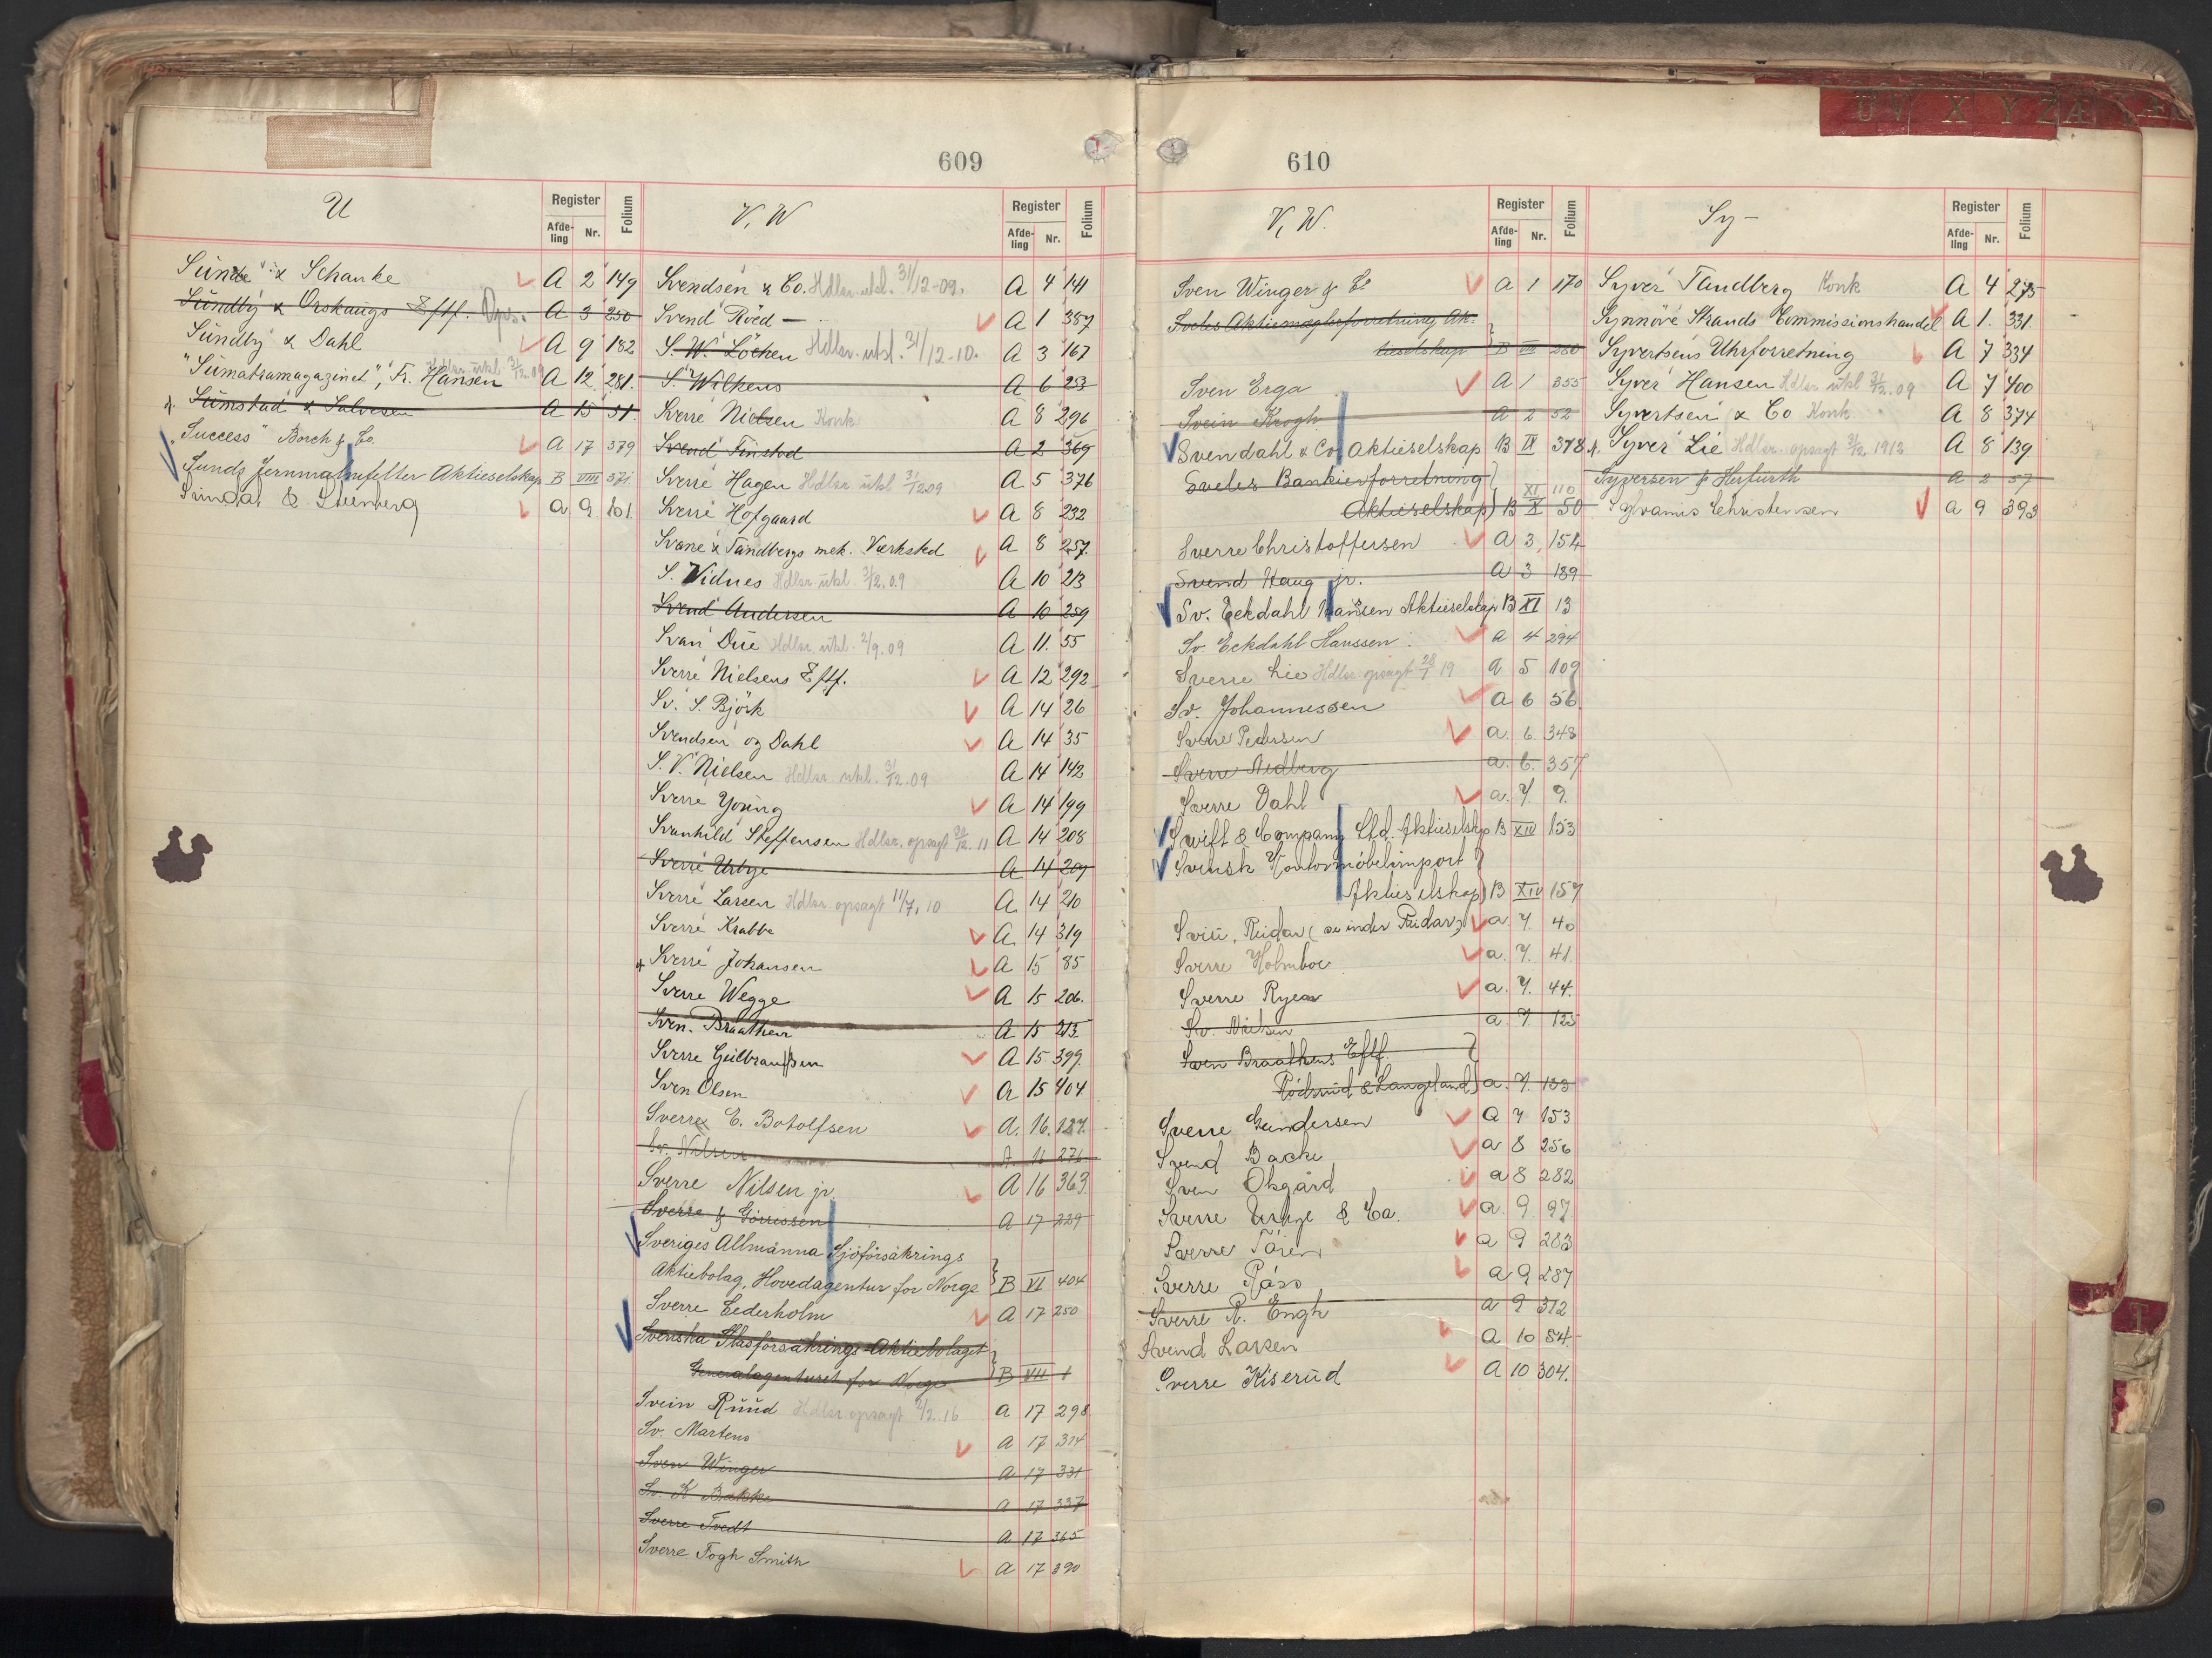 609
U
Register
Afde-ling Nr. Folium
Sunde & Schanke A 2 149
Sundby & Orskaugs Eftf. A 3 250
Sundby & Dahl A 9 182
"Sumatramagazinet", Fr. Hansen Hdlsr. utsl. 31/12.09 A 12 281.
Sumstad & Salvesen A 15 51.
"Success" Borch & Co. A 17 379
Sunds Jernmalmfelter Aktieselskap B VIII 371
Sundal & A 9. 101.
V, W
Register
Afde-ling Nr. Folium
Svendsen & Co. Hdlsr. utsl. 31/12-09. A 4 141
Svend Röed — A 1 387
S. W. Löchen Hdlsr. utsl. 31/12-10. A 3 167
S. Wilkens A 6 253
Sverre Nielsen Konk A 8 296
Svend Finstad A 2 369
Sverre Hagen Hdlsr utsl 31/12.09 A 5 376
Sverre Hofgaard A 8 232
Svane & Tandbergs mek. Værksted A 8 257.
S. Vidnes Hdlsr utsl. 31/12.09 A 10 213
Svend Andersen A 10 259
Svan Due Hdlsr. utsl. 2/9.09 A 11. 55
Sverre Nielsens Eftf. A 12 292
Sv. S. Björk A 14 26
Svendsen og Dahl A 14 35
S. V. Nielsen Hdlsr. utsl. 31/12.09 A 14 142
Sverre Young A 14 199
Svanhild Steffensen Hdlsr. opsagt 30/12.11 A 14 208
Sverre Urbye A 14 209
Sverre Larsen Hdlsr. opsagt 11/7.10 A. 14 210
Sverre Krabbe A. 14 319
Sverre Johansen A 15 85
Sverre Wegge A 15 206.
Sven. Braathen A 15 213.
Sverre Guilbrandsen A 15 399.
Sven Olsen A 15 404
Sverre E. Botolfsen A. 16. 127.
Sv. Nilsen A 16 276
Sverre Nilsen jr. A 16 363.
Sverre & Görrissen A 17 229
Sveriges Allmänna Sjöförsäkrings
Aktiebolag, Hovedagentur for Norge B VI 404
Sverre Cederholm A 17 250
Svenska Glasförsäkrings-Aktiebolaget
Generalagenturet for Norge B VII 1
Svein Ruud Hdlsr. opsagt 2/2.16 a 17 298
Sv. Martens a 17 314
Sven Winger a 17 331
Sv. K. Bakke a 17 337
Sverre Tvedt a 17 365
Sverre Fogh Smith a 17 390
610
V, W.
Register
Afde-ling Nr. Folium
Sven Winger & Co A 1 170
Sveles Aktiemæglerforretning Ak-
tieselskap B VIII 280
Sven Erga A 1 355
Svein Krogh A 2 52
Svendahl & Co, Aktieselskap B IX 378
Sveles Bankierforretning XI 110
Aktieselskap B X 50
Sverre Christoffersen A 3, 154
Svend Haug jr. A 3 189
Sv. Eekdahl Hansen Aktieselskap B XI 13
Sv. Eckdahl Hanssen. a 4 294
Sverre Lie Hdlsr opsagt 28/1 19 a 5 109
Sv. Johannessen a 6 56.
Sverre Pedersen a. 6. 348
Sverre Nedberg a. 6. 357
Sverre Dahl a. 7. 9.
Swift & Company Ltd. Aktieselskap B XIV 153
Svensk Kontormöbelimport
Aktieselskap B XIV 157
Sviu, Reidar (se under Reidar) a. 7. 40
Sverre Holmboe a. 7. 41.
Sverre Ryen a. 7. 44.
Sv. Nielsen a 7. 125
Sven Braathens Eftf.
Rödsrud & Langeland a. 7. 133
Sverre Gundersen a 7 153
Svend Backe a 8 256
Sven Oksgård a 8 282
Sverre Urbye & Co. a. 9. 97
Sverre a 9 283
Sverre Råss a 9 287
Sverre R. Engh a 9 312
Svend Larsen a 10 54.
Sverre Kiserud a 10 304.
Sy-
Register
Afde-ling Nr. Folium
Syver Tandberg Konk A 4 275
Synnöve Strands Commissionshandel A 1. 331.
Syvertsens Uhrforretning A 7 334
Syver Hansen Hdlsr utsl 31/12.09 A 7 400
Syvertsen & Co Konk. A 8 374
Syver Lie Hdlsr. opsagt 31/12. 1912 A 8 139
Syversen & Herfurth a 2 57
Sylvanis Christensen a 9 393
UV X Y Z Æ
T